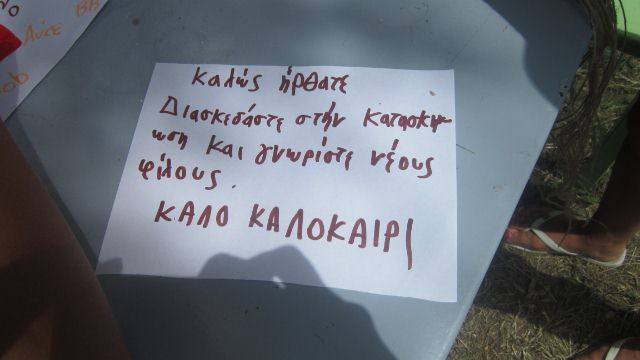 Καλώς ήρθατε
Διασκεδάστε στήν κατασκη-
ωση και γνωρίστε νέους
φίλους.
ΚΑΛΟ ΚΑΛΟΚΑΙΡΙ
Αυζε BB
ob